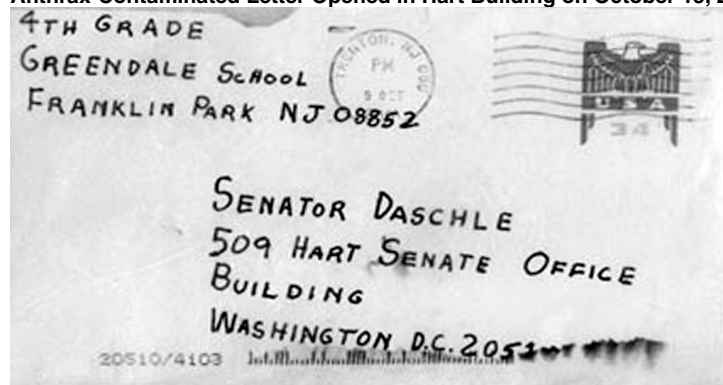 Anthrax-Contaminated Letter Opened in Hart Building on October 15, 2
4TH GRADE
GREENDALE SCHOOL
FRANKLIN PARK NJ 08852
TRENTON, NJ
PM
9 OCT
USA
34
SENATOR DASCHLE
509 HART SENATE OFFICE
BUILDING
WASHINGTON D.C. 2051
20510/4103